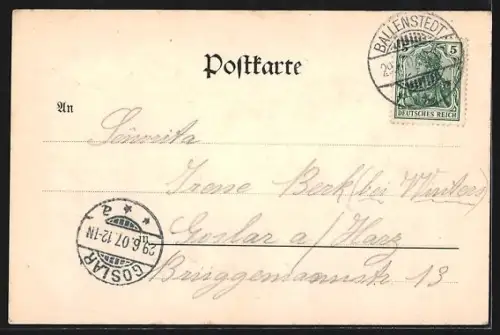 Postkarte
BALLENSTEDT
5
DEUTSCHES REICH
An
Señorita
Irene Berk (bei Winters)
Goslar a/Harz
Brüggemannstr 13
29.6.07.12-1N
GOSLAR